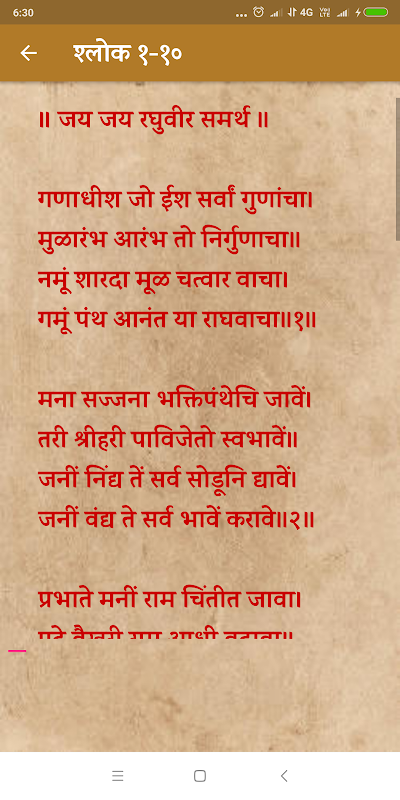 6:30
... 4G VoLTE
श्लोक १-१०
॥ जय जय रघुवीर समर्थ ॥
गणाधीश जो ईश सर्वां गुणांचा।
मुळारंभ आरंभ तो निर्गुणाचा॥
नमूं शारदा मूळ चत्वार वाचा।
गमूं पंथ आनंत या राघवाचा॥१॥
मना सज्जना भक्तिपंथेचि जावें।
तरी श्रीहरी पाविजेतो स्वभावें॥
जनीं निंद्य तें सर्व सोडूनि द्यावें।
जनीं वंद्य ते सर्व भावें करावे॥२॥
प्रभाते मनीं राम चिंतीत जावा।